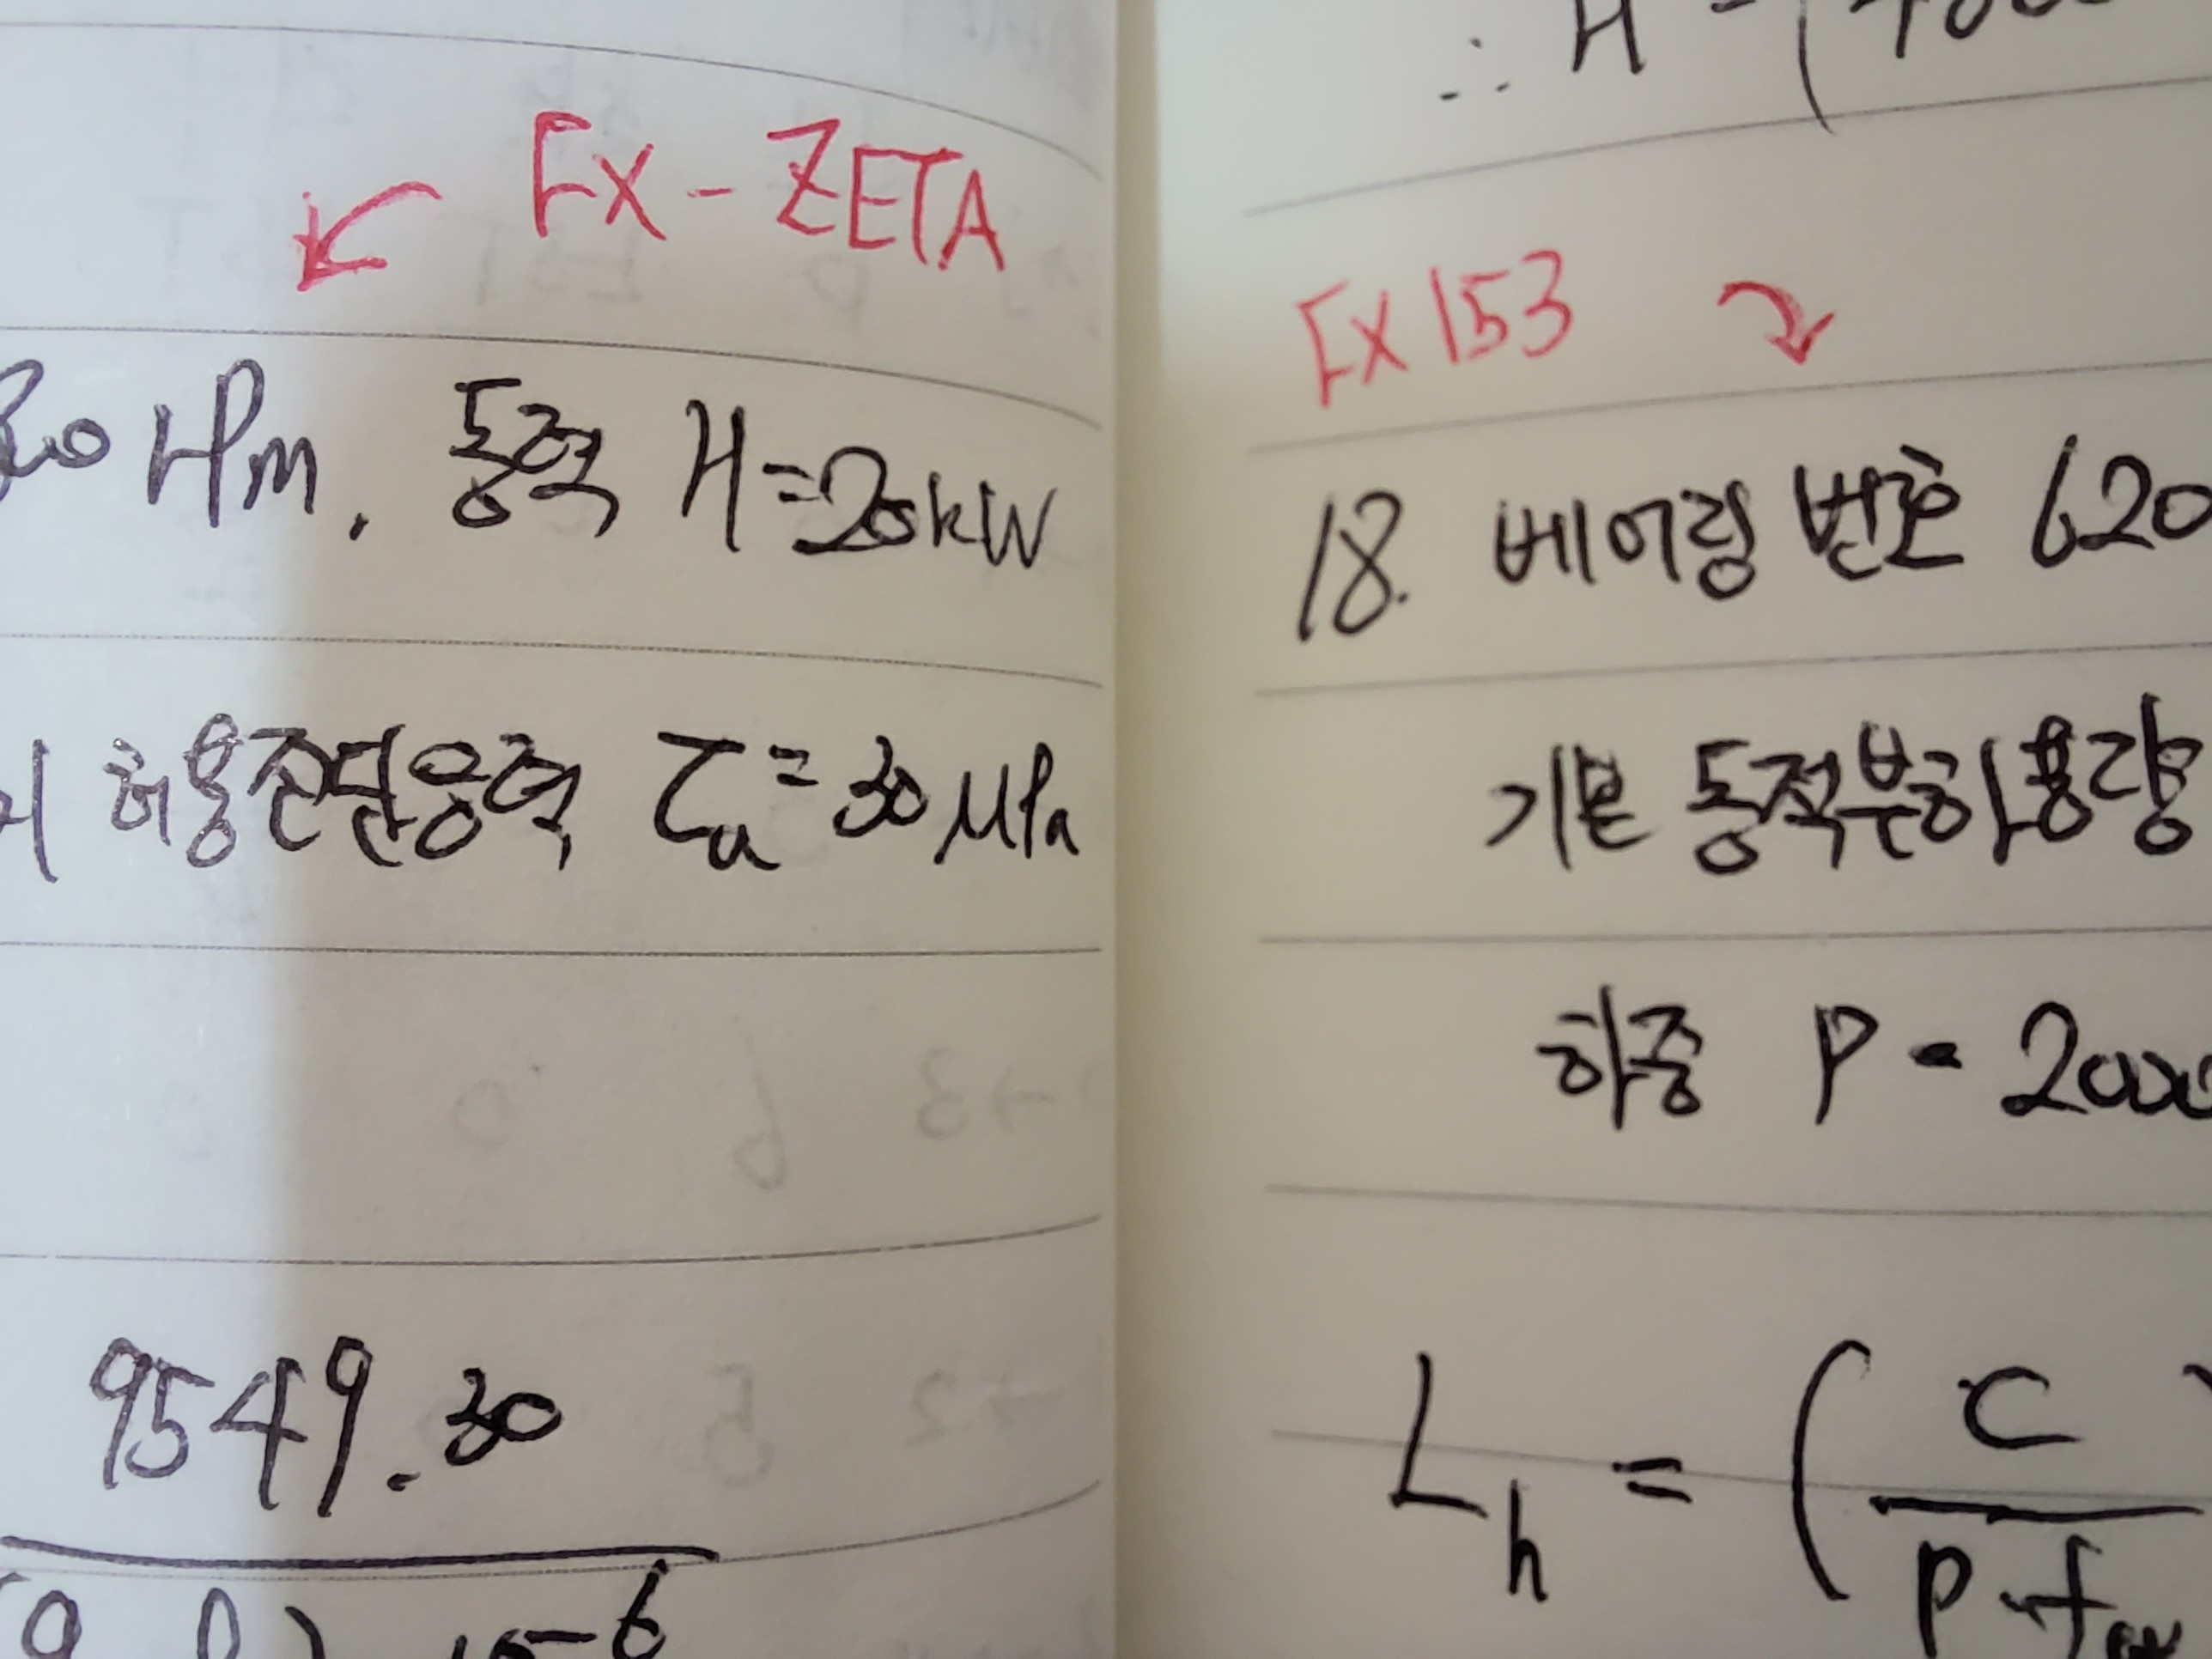 FX-ZETA
동력 H=20kW
허용전단응력 τa=30MPa
9549.30
-6
∴ H
FX153
18. 베어링 번호 620
기본 동적부하용량
하중 P = 2000
Lh = ( C
P·f